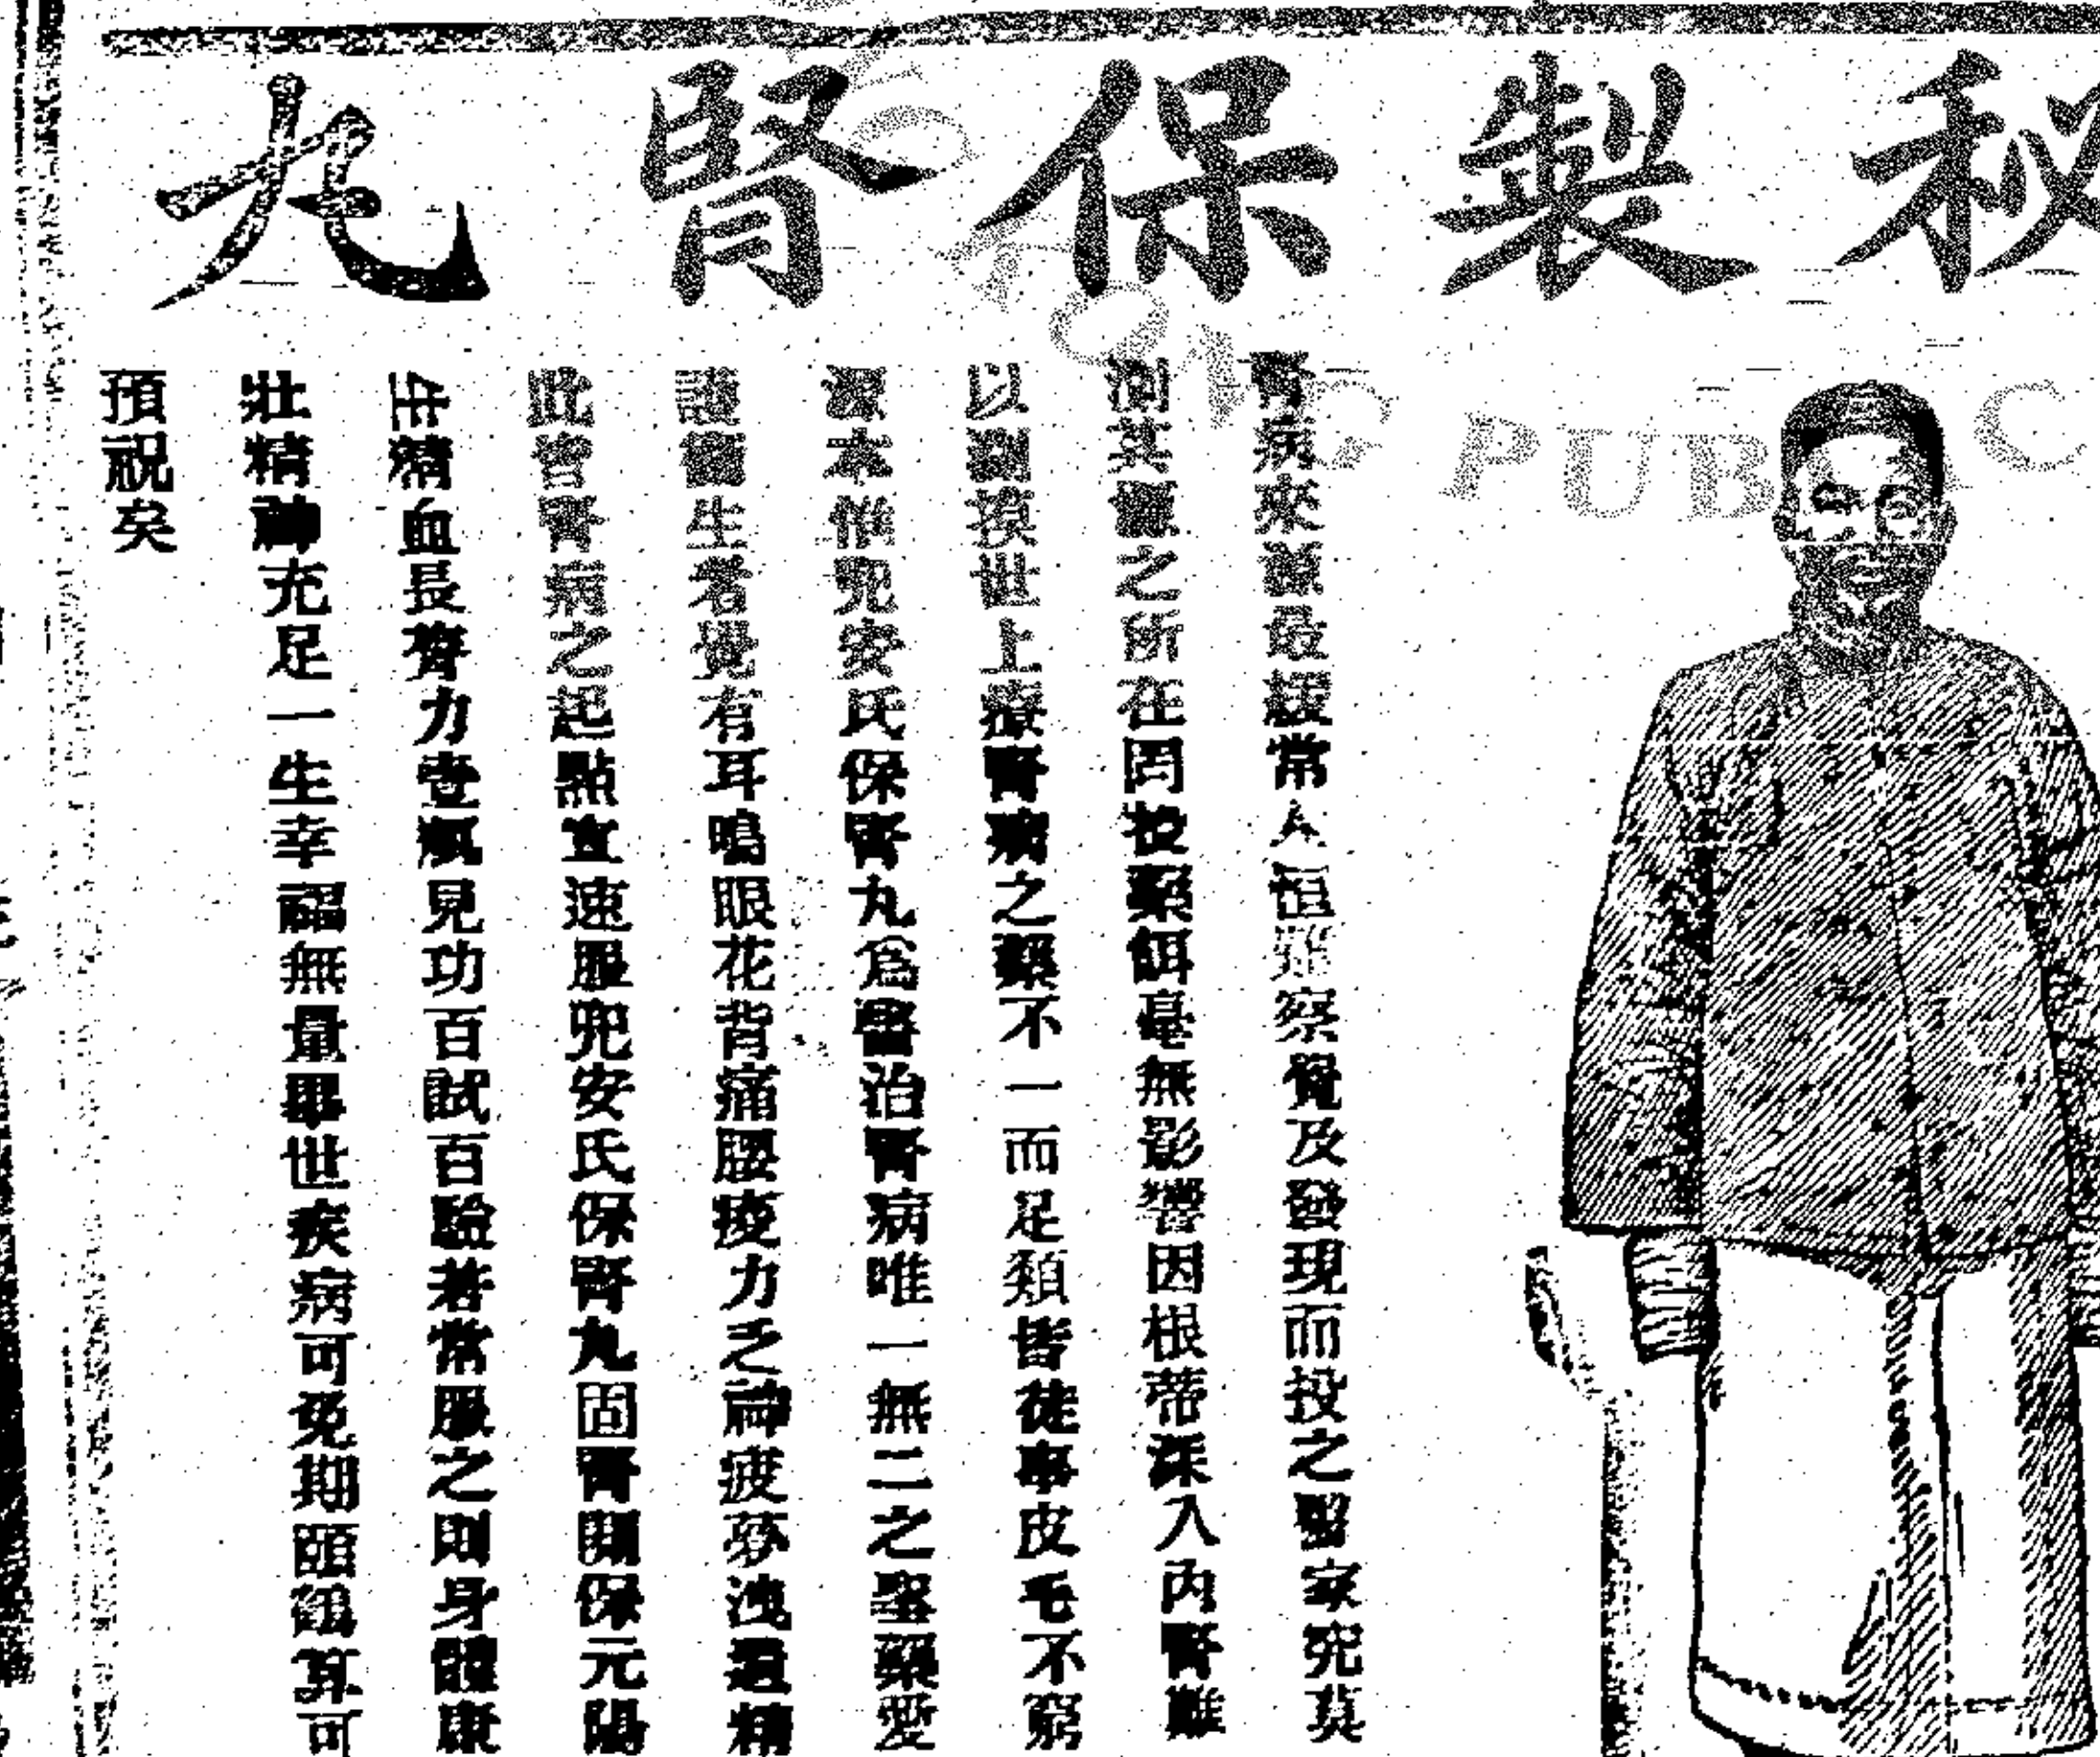 秘製保腎丸
腎病來源最緩常人恒難察覺及發現而投之醫家究莫
測其源之所在罔投藥餌毫無影響因根蒂深入內腎難
以測摸世上療腎病之藥不一而足類皆徒事皮毛不窮
源本惟兜安氏保腎丸爲醫治腎病唯一無二之聖藥愛
護衛生者覺有耳鳴眼花背痛腰痠力乏神疲夢洩遺精
此皆腎病之起點宜速服兜安氏保腎丸固腎關保元陽
生精血長膂力壹瓶見功百試百驗若常服之則身體康
壯精神充足一生幸福無量畢世疾病可免期頤鶴算可
預祝矣
PUB C